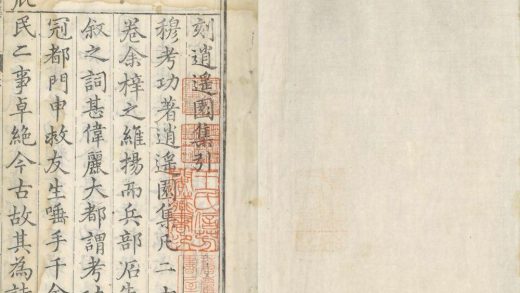 刻逍遙園集引
穆考功著逍遙園集凡二
卷余梓之維揚而兵部
叙之詞甚偉麗大都謂考
冠都門申救友生唾手千
民二事卓絕今古故其為